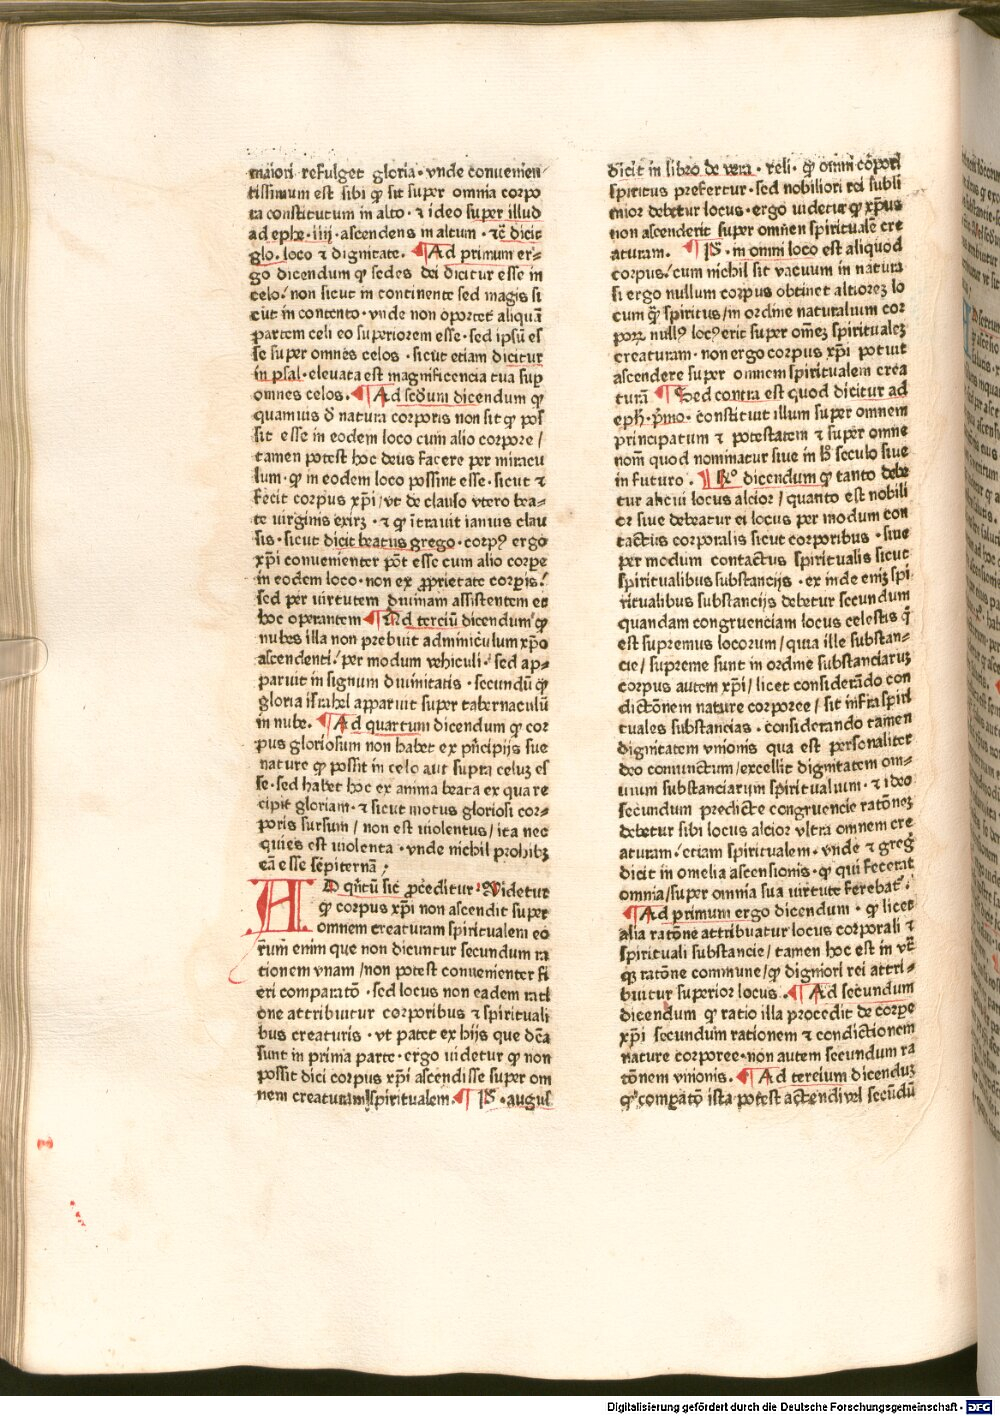 maiori refulget gloria · vnde conuenien
tissimum est sibi ꝙ sit super omnia corpo
ra constitutum in alto · ⁊ ideo super illud
ad ephe · iiij · ascendens in altum · ⁊c̄ dicit
glo · loco ⁊ dignitate · ¶ Ad primum er⸗
go dicendum ꝙ sedes dei dicitur esse in
celo / non sicut in continente sed magis si
cut in contento · vnde non oportet aliquā
partem celi eo superiorem esse · sed ipsū es
se super omnes celos · sicut etiam dicitur
in psal · eleuata est magnificencia tua sup
omnes celos · ¶ Ad secdum dicendum ꝙ
quamuis đ natura corporis non sit ꝙ pos
sit esse in eodem loco cum alio corpore /
tamen potest hoc deus facere per miracu
lum · ꝙ in eodem loco possint esse · sicut ⁊
fecit corpus xp̄i / vt de clauso vtero bea⸗
te virginis exirꝫ · ⁊ ꝙ ītrauit ianuis clau
sis · sicut dicit beatus grego · corpꝰ ergo
xp̄i conuenienter pōt esse cum alio corpe
in eodem loco · non ex ꝓprietate corpis /
sed per virtutem diuinam assistentem et
hoc operantem ¶ Ad terciū dicendum ꝙ
nubes illa non prebuit adminiculum xp̄o
ascendenti / per modum vehiculi · sed ap⸗
paruit in signum diuinitatis · secundū ꝙ
gloria israhel apparuit super tabernaculū
in nube · ¶ Ad quartum dicendum ꝙ cor
pus gloriosum non habet ex pn̄cipijs sue
nature ꝙ possit in celo aut supra celuꝫ es
se · sed habet hoc ex anima beata ex qua re
cipit gloriam · ⁊ sicut motus gloriosi cor⸗
poris sursum / non est violentus / ita nec
quies est violenta · vnde nichil prohibꝫ
eā esse sēpiternā ;
AD qn̄tū sic ꝓceditur · Videtur
ꝙ corpus xp̄i non ascendit super
omnem creaturam spiritualem eo
rūm enim que non dicuntur secundum ra
tionem vnam / non potest conuenienter fi
eri comparatō · sed locus non eadem rati
one attribuitur corporibus ⁊ spirituali
bus creaturis · vt patet ex hijs que dc̄a
sunt in prima parte · ergo uidetur ꝙ non
possit dici corpus xp̄i ascendisse super om
nem creaturam spiritualem · ¶ PS · augus
dicit in libro de vera · reli · ꝙ omni cōpori
spiritus prefertur · sed nobiliori rei subli
mior debetur locus · ergo uidetur ꝙ xp̄us
non ascenderit super omnen spiritualē cre
aturam · ¶ PS · in omni loco est aliquod
corpus / cum nichil sit vacuum in natura
si ergo nullum corpus obtinet altioreꝫ lo
cum ꝙ̄ spiritus / in ordine naturalium cor
poꝝ nullꝰ locꝰ erit super omēꝫ spiritualeꝫ
creaturam · non ergo corpus xp̄i potuit
ascendere super omnem spiritualem crea
turā ¶ Sed contra est quod dicitur ad
eph · p̄mo · constituit illum super omnem
principatum ⁊ potestatem ⁊ super omne
nom̄ quod nominatur siue in h̄ seculo siue
in futuro · ¶ Rͦ dicendum ꝙ tanto debe
tur alicui locus alcior / quanto est nobili
or siue debeatur ei locus per modum con
tactus corporalis sicut corporibus · siue
per modum contactus spiritualis sicut
spiritualibus substancijs · ex inde eniꝫ spi
ritualibus substancijs debetur secundum
quandam congruenciam locus celestis ꝙ̄
est supremus locorum / quia ille substan⸗
cie / supreme sunt in ordine substanciaruꝫ
corpus autem xp̄i / licet considerādo con
dictōnem nature corporee / sit infra spiri
tuales substancias · considerando tamen
dignitatem vnionis qua est personaliter
deo coniunctum / excellit dignitatem om⸗
nium substanciarum spiritualium · ⁊ ideo
secundum predicte congruencie ratōneꝫ
debetur sibi locus alcior vltra omnem cre
aturam / etiam spiritualem · vnde ⁊ greg̓
dicit in omelia ascensionis · ꝙ qui fecerat
omnia / super omnia sua virtute ferebat̓ ·
¶ Ad primum ergo dicendum · ꝙ licet
alia ratōne attribuatur locus corporali ⁊
spirituali substancie / tamen hoc est in vt̄
qꝫ ratōne commune / ꝙ digniori rei attri⸗
buitur superior locus · ¶ Ad secundum
dicendum ꝙ ratio illa procedit de corpe
xp̄i secundum rationem ⁊ condictionem
nature corporee · non autem secundum ra
tōnem vnionis · ¶ Ad tercium dicenduꝫ
ꝙ comparatō ista potest actendi vel secūdū
Digitalisierung gefördert durch die Deutsche Forschungsgemeinschaft - DFG